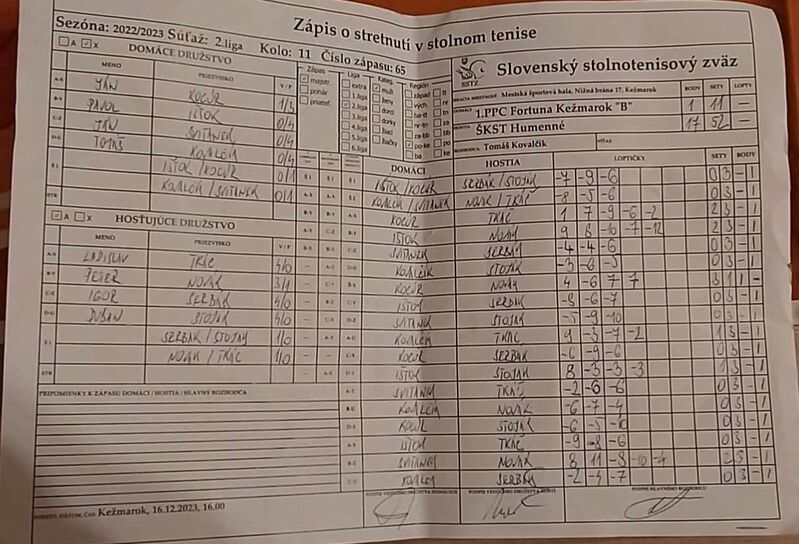 Zápis o stretnutí v stolnom tenise
Sezóna: 2022/2023 Súťaž: 2.liga Kolo: 11 Číslo zápasu: 65
Slovenský stolnotenisový zväz
SSTZ
A X DOMÁCE DRUŽSTVO
MENO PRIEZVISKO V/P
A-X JÁN KOCÚR 1/3
B-Y PAVOL IŠTOK 0/4
C-Z JÁN SVITANEK 0/4
D-U TOMÁŠ KOVALČÍK 0/4
Š1 IŠTOK/KOCÚR 0/1
KOVALČÍK/SVITANEK 0/1
STR
A X HOSŤUJÚCE DRUŽSTVO
MENO PRIEZVISKO V/P
A-X LADISLAV TKÁČ 4/0
B-Y PETER NOVÁK 3/1
C-Z IGOR SERBÁK 4/0
D-U DUŠAN STOJÁK 4/0
Š1 SERBÁK/STOJÁK 1/0
NOVÁK/TKÁČ 1/0
STR
PRIPOMIENKY K ZÁPASU DOMÁCI / HOSTIA / HLAVNÝ ROZHODCA
Kežmarok, 16.12.2023, 16.00
Zápas
majstr.
pohár
priateľ.
Liga
extra
1.liga
2.liga
3.liga
4.liga
5.liga
6.liga
Kateg.
muži
ženy
dorci
dorky
žiaci
žiačky
Región
západ tt
vých nr
ba-tt tn
nr-tn za
za-bb bb
po-ke po
ba ke
Mestská športová hala, Nižná brána 17, Kežmarok BODY SETY LOPTY
1.PPC Fortuna Kežmarok "B" 1 11 —
HOSTIA ŠKST Humenné 17 52 —
Tomáš Kovalčík
DOMÁCI HOSTIA LOPTIČKY SETY BODY
IŠTOK/KOCÚR SERBÁK/STOJÁK -7 -9 -6 0 3 - 1
KOVALČÍK/SVITANEK NOVÁK/TKÁČ -8 -5 -6 0 3 - 1
KOCÚR TKÁČ 1 7 -9 -6 -2 2 3 - 1
IŠTOK NOVÁK 9 8 -10 -7 -12 2 3 - 1
SVITANEK SERBÁK -4 -4 -6 0 3 - 1
KOVALČÍK STOJÁK -3 -6 -5 0 3 - 1
KOCÚR NOVÁK 4 -6 7 7 3 1 1 -
IŠTOK SERBÁK -8 -6 -7 0 3 - 1
SVITANEK STOJÁK -5 -9 -10 0 3 - 1
KOVALČÍK TKÁČ 9 -3 -7 -2 1 3 - 1
KOCÚR SERBÁK -6 -9 -6 0 3 - 1
IŠTOK STOJÁK 8 -3 -3 -3 1 3 - 1
SVITANEK TKÁČ -2 -6 -6 0 3 - 1
KOVALČÍK NOVÁK -6 -7 -4 0 3 - 1
KOCÚR STOJÁK -6 -5 -10 0 3 - 1
IŠTOK TKÁČ -9 -8 -6 0 3 - 1
SVITANEK NOVÁK 8 11 -8 -10 -4 2 3 - 1
KOVALČÍK SERBÁK -2 -4 -7 0 3 - 1
PODPIS VEDÚCEHO DRUŽSTVA DOMÁCICH PODPIS VEDÚCEHO DRUŽSTVA HOSTÍ PODPIS HLAVNÉHO ROZHODCU